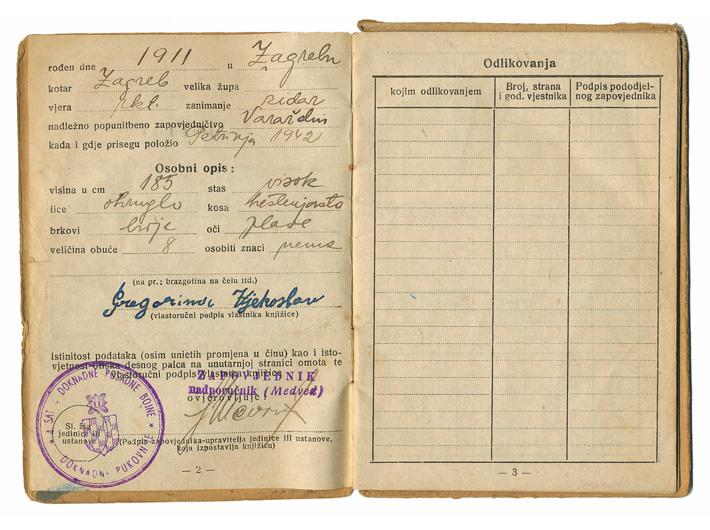 rođen dne 1911 u Zagrebu
kotar Zagreb velika župa
vjera rkt. zanimanje zidar
nadležno popunitbeno zapovjedničtvo Varaždin
kada i gdje prisegu položio Petrinja 1942
Osobni opis:
visina u cm 185 stas visok
lice okruglo kosa kestenjasta
brkovi brije oči plave
veličina obuće 8 osobiti znaci nema
(na pr.: brazgotina na čelu itd.)
Gregorinović Vjekoslav
(vlastoručni podpis vlastnika knjižice)
Istinitost podataka (osim unietih promjena u činu) kao i isto-
vjetnost otiska desnog palca na unutarnjoj stranici omota te
vlastoručni podpis vlastnika knjižice
ZAPOVJEDNIK
nadporučnik (Medved)
ovjerovljuje:
A SAT - DOKNADNE POSADNE BOJNE
DOKNADNE PUKOVNIJE
jedinice
ustanove
(Podpis zapovjednika-upravitelja jedinice ili ustanove,
koja izpostavlja knjižicu)
— 2 —
Odlikovanja
kojim odlikovanjem
Broj, strana
i god. vjestnika
Podpis pododjel-
nog zapovjednika
— 3 —